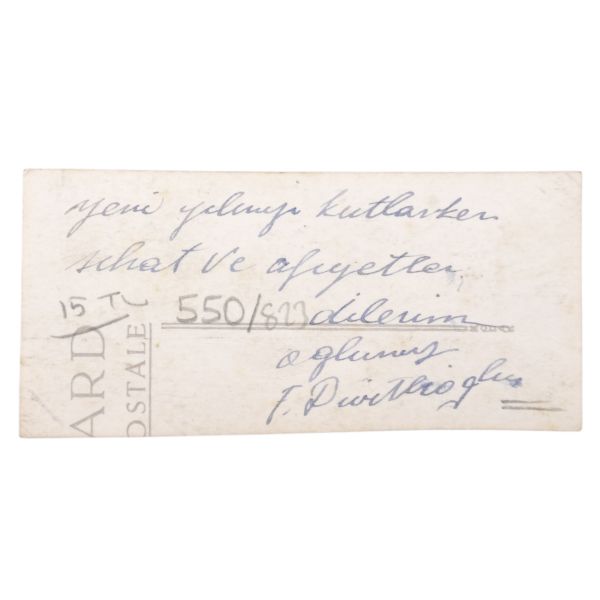 yeni yılınızı kutlarken
sıhat ve afiyetler
15 TL
550/823 dilerim
oğlunuz
F. Dörtlioğlu
ARD
OSTALE